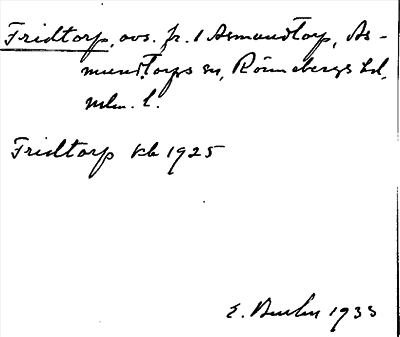 Fridtorp, avs. fr. 1 Asmundtorp, As-
mundtorps sn, Rönnebergs hd,
Mlm. l.
Fridtorp kb 1925
E. 1933